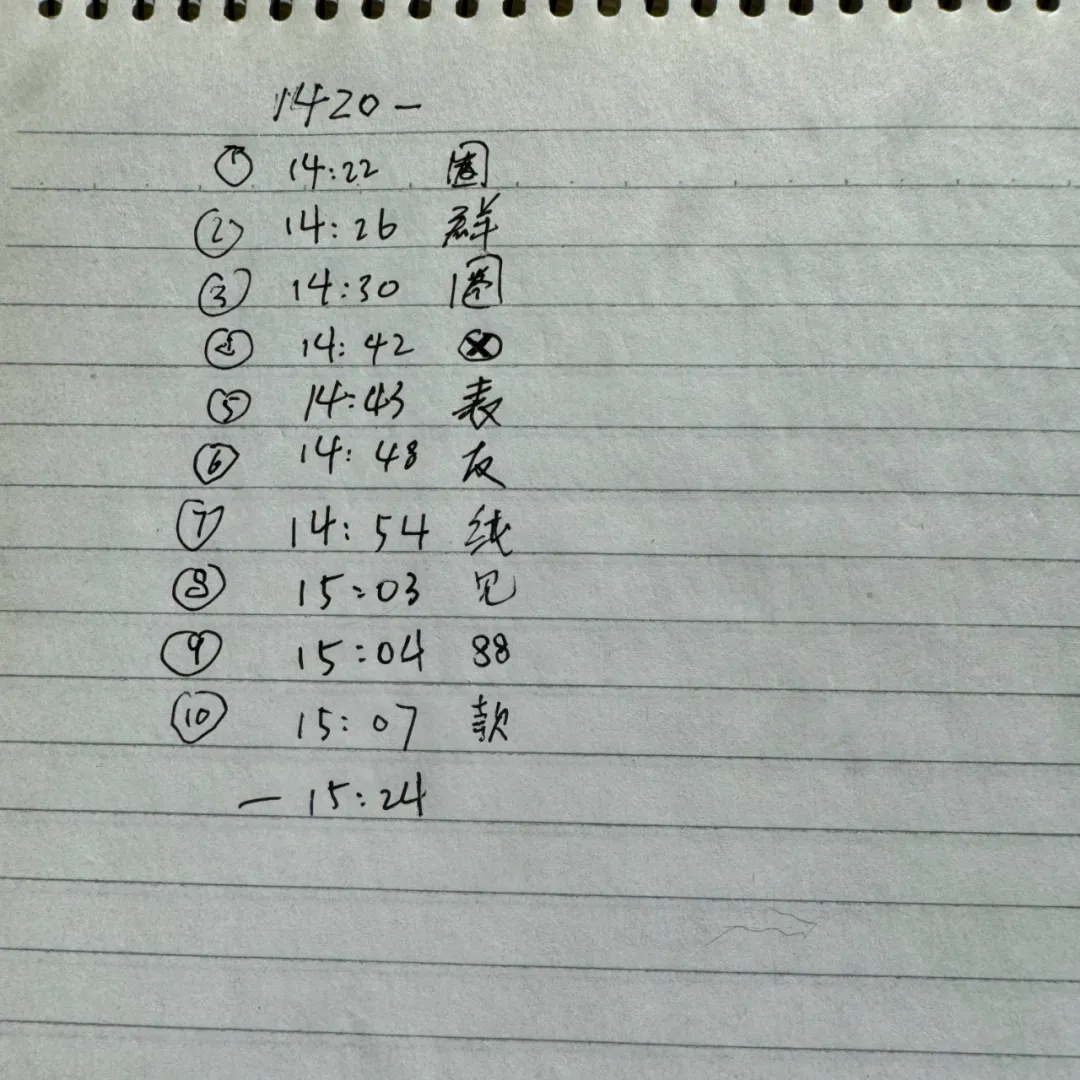 1420-
① 14:22 圈
② 14:26 群
③ 14:30 圈
④ 14:42 ⊗
⑤ 14:43 表
⑥ 14:48 反
⑦ 14:54
⑧ 15:03 见
⑨ 15:04 88
⑩ 15:07 款
— 15:24